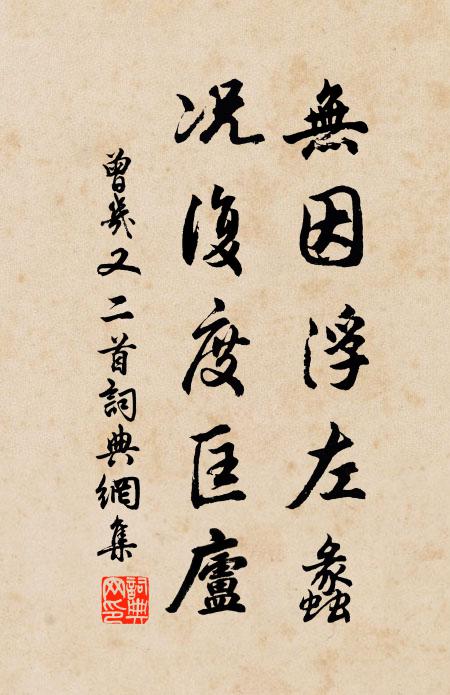 無因浮左蠡
况復度匡廬
曾幾又二首詞典網集
詞典网印